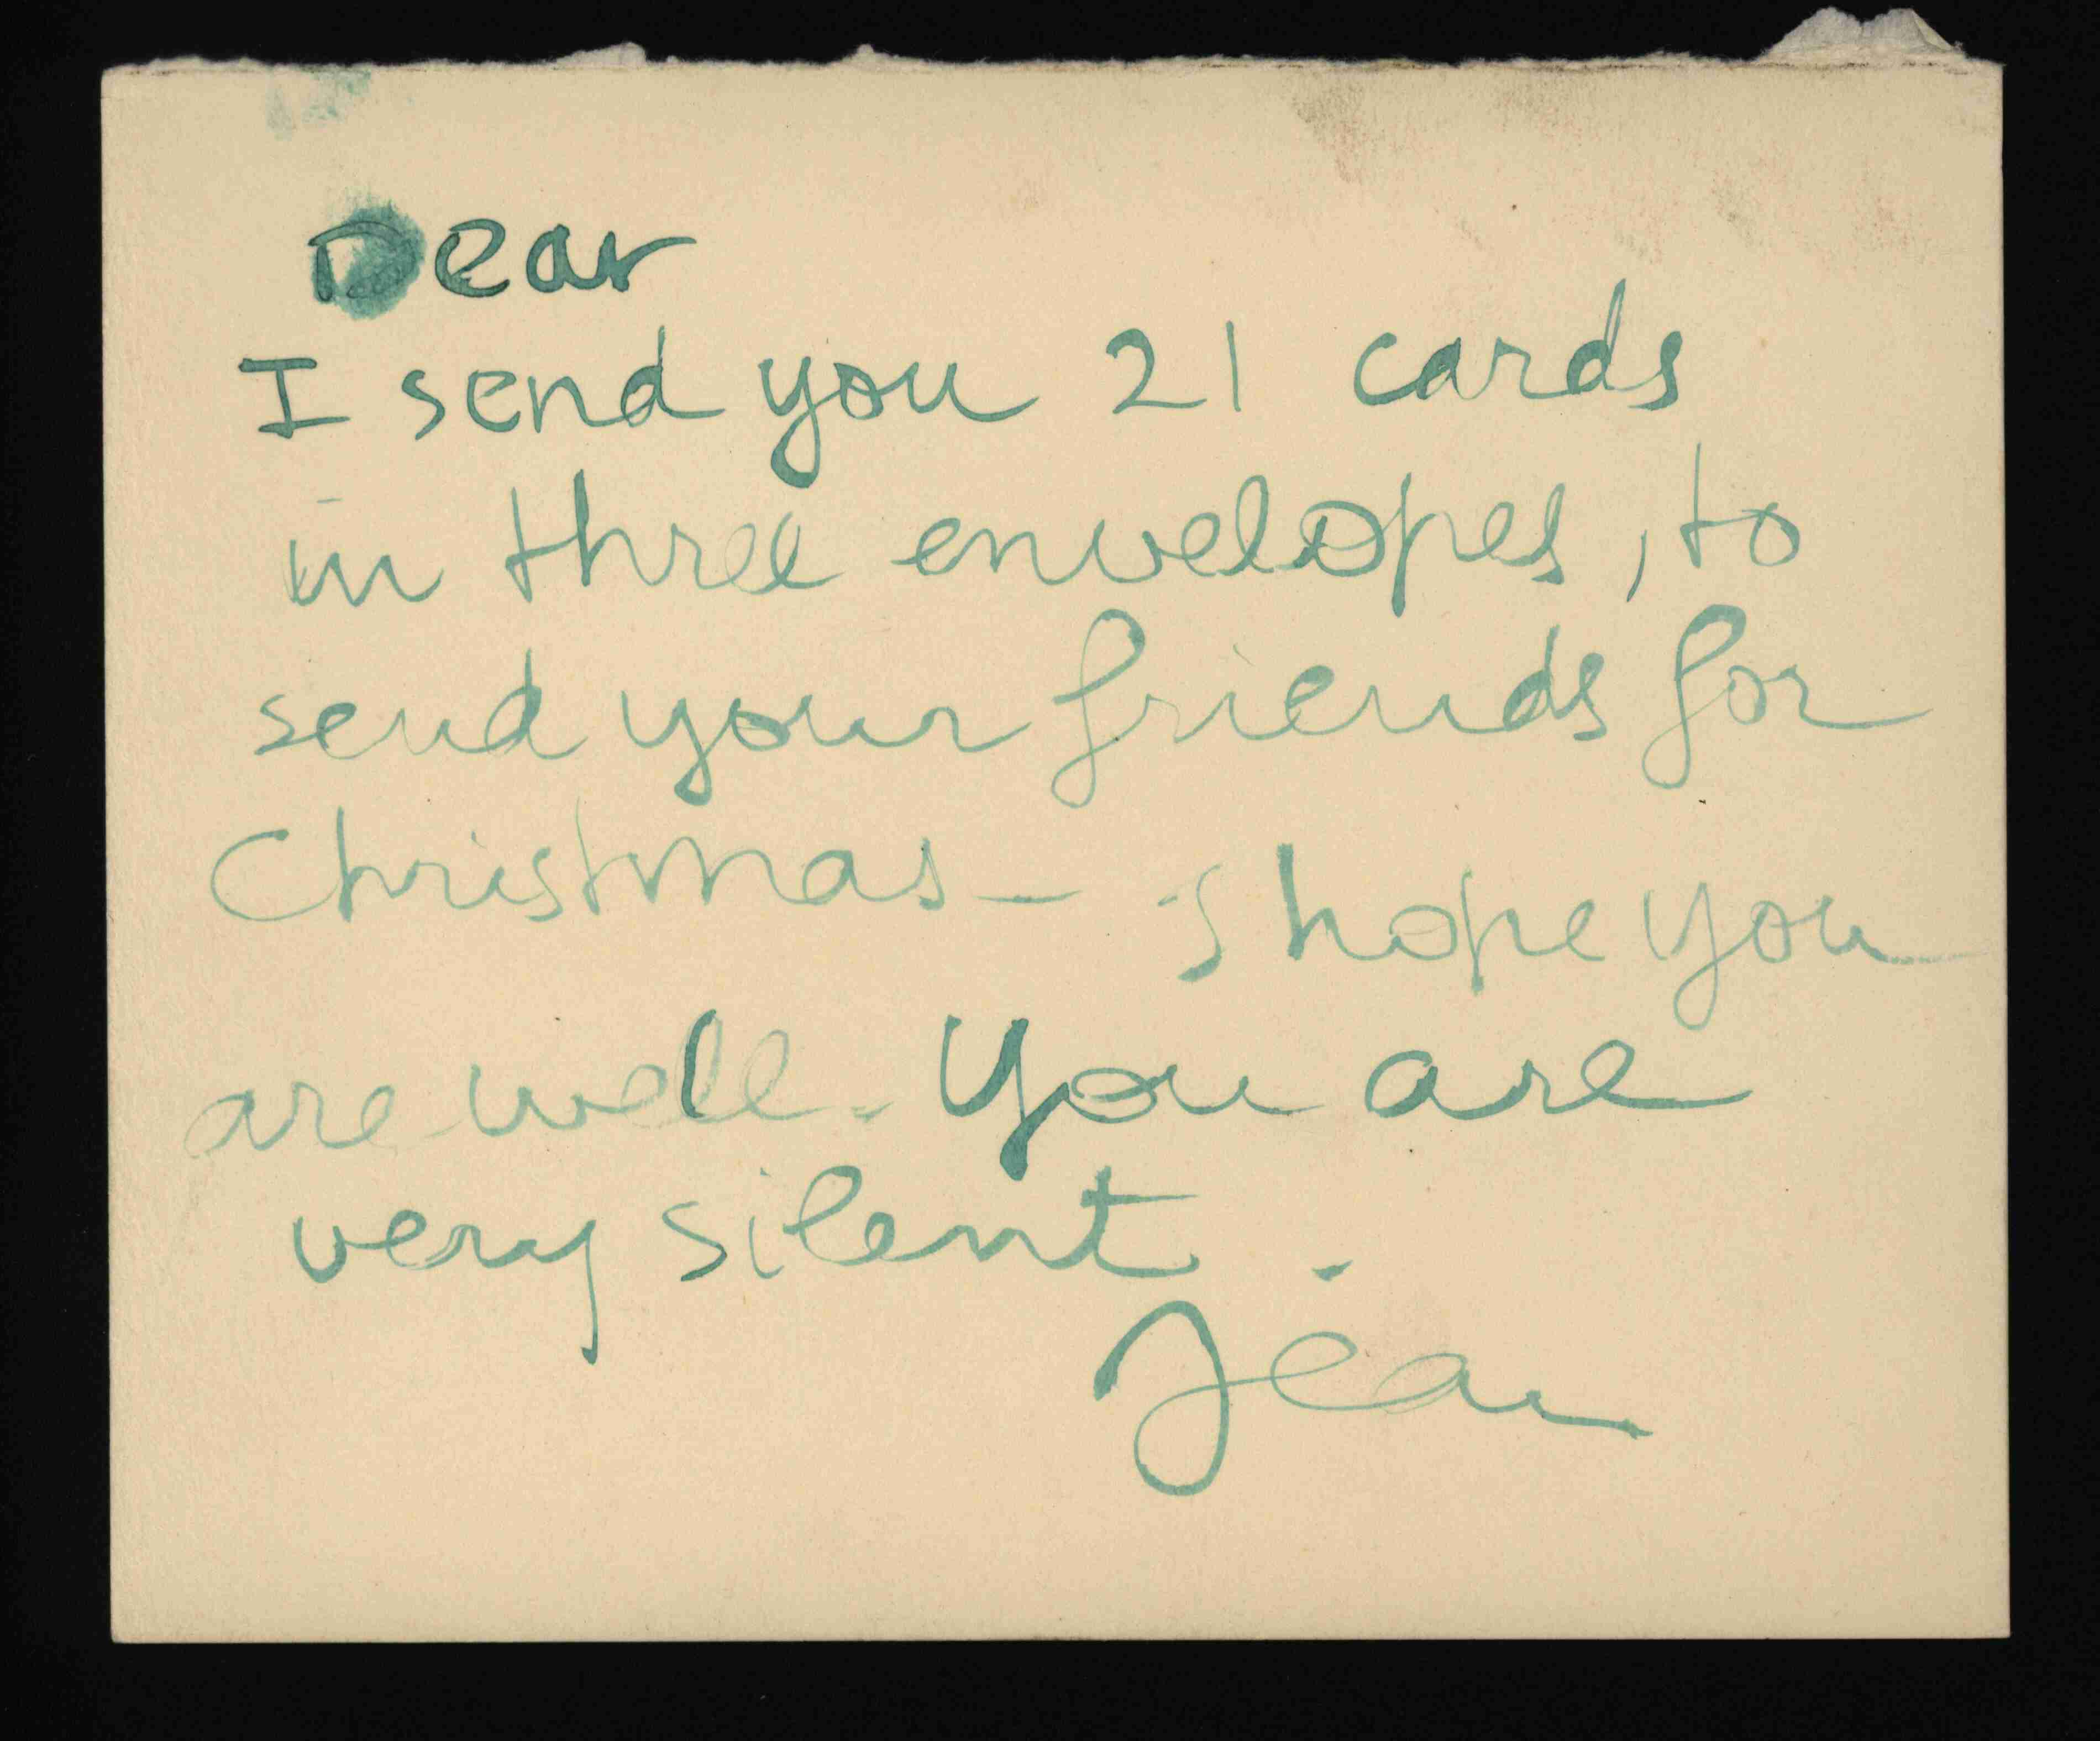 Dear
I send you 21 cards
in three envelopes, to
send your friends for
Christmas — I hope you
are well. You are
very silent.
Jean